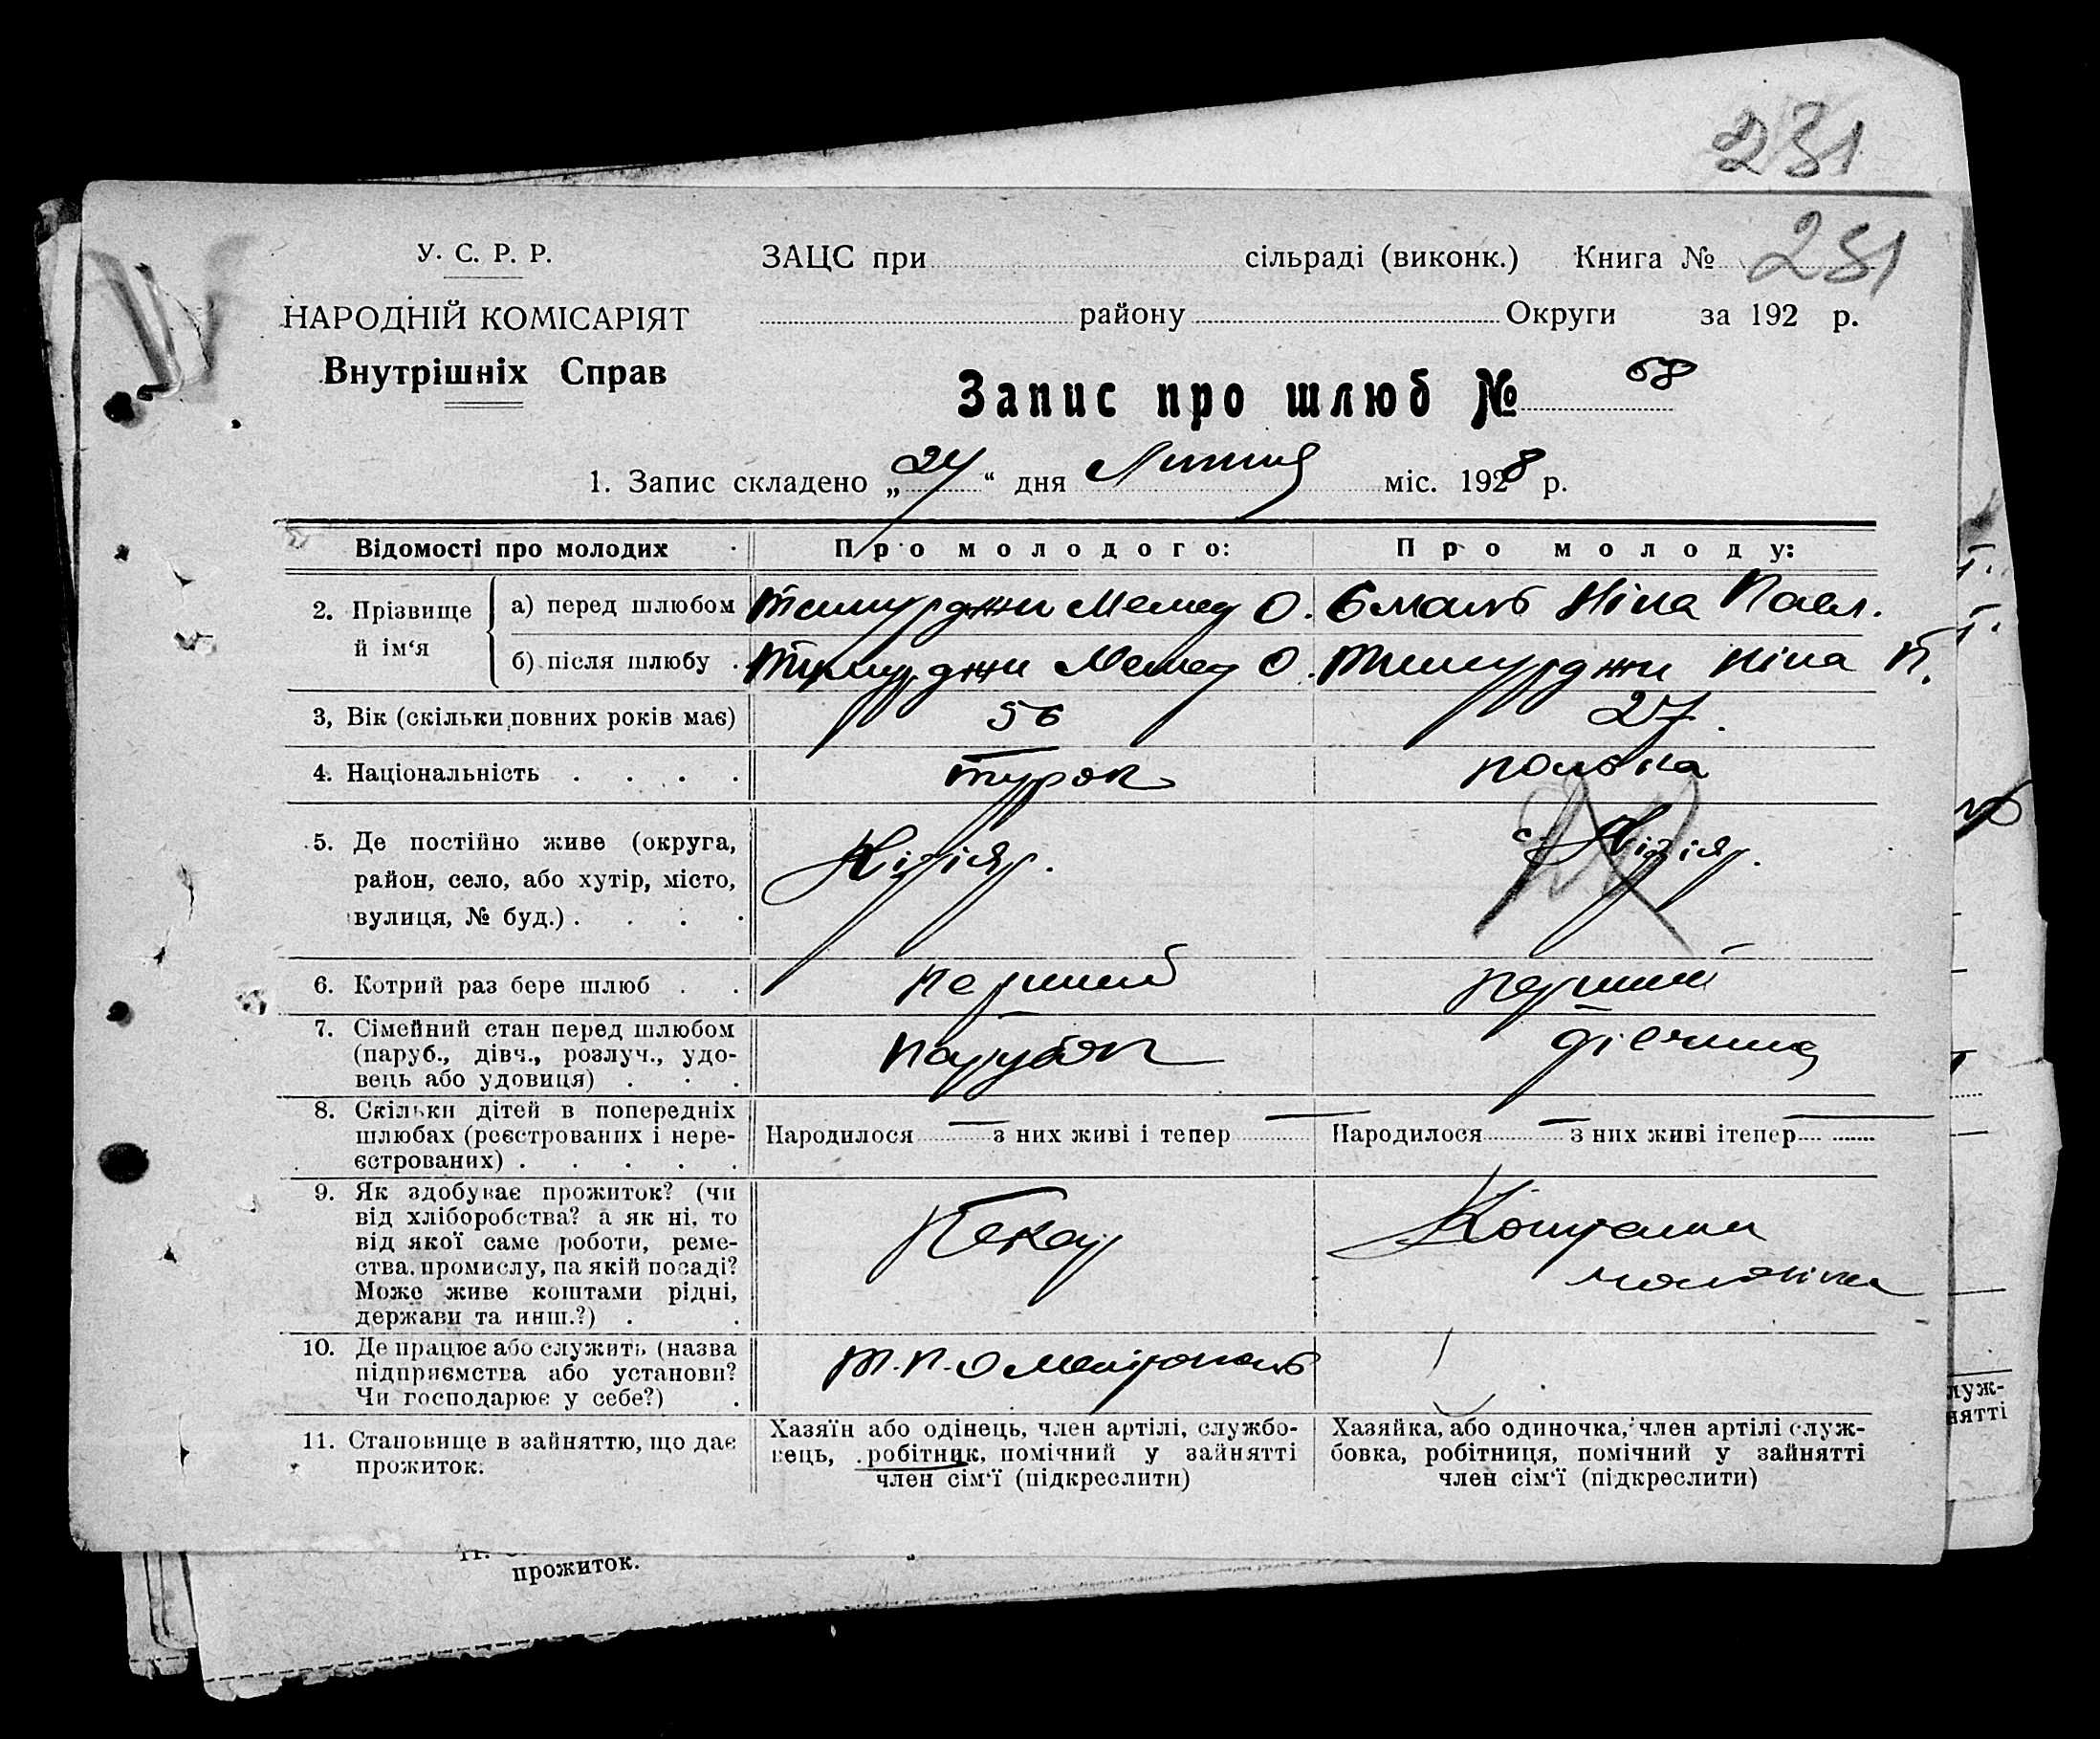 231
У. С. Р. Р.
НАРОДНІЙ КОМІСАРІЯТ
Внутрішніх Справ
ЗАЦС при сільраді (виконк.) Книга № 251
району Округи за 192 р.
Запис про шлюб № 68
1. Запис складено „24“ дня Липня міс. 1928 р.
Відомості про молодих Про молодого: Про молоду:
2. Прізвище й ім‘я
а) перед шлюбом Мемед О. Ніна Павл.
б) після шлюбу Тимурджи Мемед О. Тимурджи Ніна П.
3, Вік (скільки повних років має) 56 27.
4. Національність турок полька
5. Де постійно живе (округа,
район, село, або хутір, місто,
вулиця, № буд.)
6. Котрий раз бере шлюб перший перший
7. Сімейний стан перед шлюбом
(паруб., дівч., розлуч., удо-
вець або удовиця) парубок дівчина
8. Скільки дітей в попередніх
шлюбах (реєстрованих і нере-
єстрованих)
Народилося — з них живі і тепер — Народилося — з них живі ітепер —
9. Як здобуває прожиток? (чи
від хліборобства? а як ні, то
від якої саме роботи, реме-
ства, промислу, на якій посаді?
Може живе коштами рідні,
держави та инш.?)
Пекар
Коштами
чоловіка
10. Де працює або служить (назва
підприємства або установи?
Чи господарює у себе?)
11. Становище в зайняттю, що дає
прожиток.
Хазяїн або одінець, член артілі, службо-
вець, робітник, помічний у зайнятті
член сім‘ї (підкреслити)
Хазяйка, або одиночка, член артілі служ-
бовка, робітниця, помічний у зайнятті
член сім‘ї (підкреслити)
луж-
нятті
11.
прожиток.